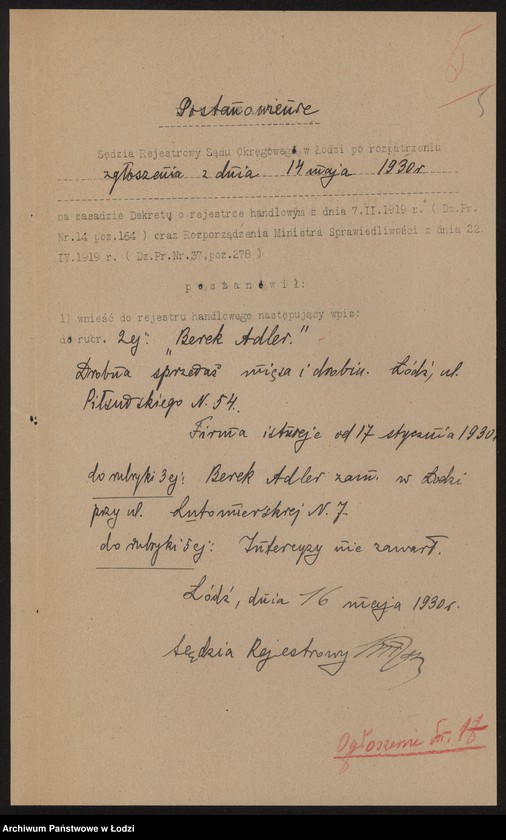 5
Postanowienie
Sędzia Rejestrowy Sądu Okręgowego w Łodzi po rozpatrzeniu
zgłoszenia z dnia 14 maja 1930 r
na zasadzie Dekretu o rejestrze handlowym z dnia 7.II.1919 r. ( Dz.Pr.
Nr.14 poz.164 ) oraz Rozporządzenia Ministra Sprawiedliwości z dnia 22
IV.1919 r. ( Dz.Pr.Nr.37,poz.278 )
p o s t a n o w i ł:
1) wnieść do rejestru handlowego następujący wpis:
do rubr. 2ej: „Berek Adler."
Drobna sprzedaż mięsa i drobiu. Łódź, ul.
Piłsudskiego N. 54.
Firma istnieje od 17 stycznia 1930r.
do rubryki 3ej: Berek Adler zam. w Łodzi
przy ul. Lutomierskiej N. 7.
do rubryki 5ej: Intercyzy nie zawarł.
Łódź, dnia 16 maja 1930 r.
Sędzia Rejestrowy
Ogłoszenie
Archiwum Państwowe w Łodzi